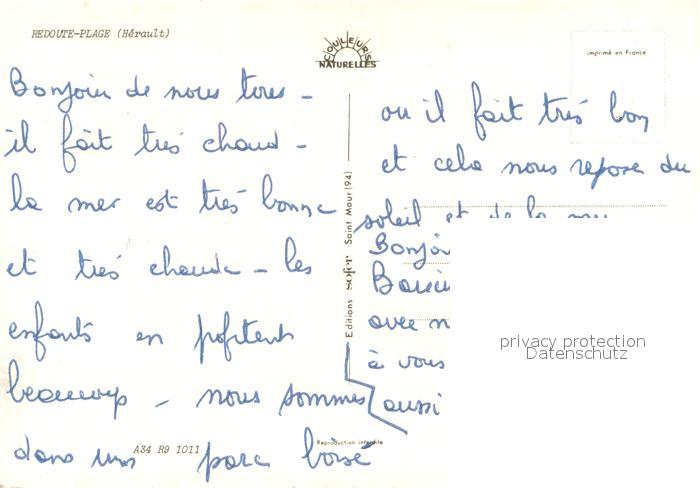 REDOUTE-PLAGE (Hérault)
COULEURS
NATURELLES
imprimé en France
Bonjour de nous tous -
il fait très chaud -
la mer est très bonne
et très chaude - les
enfants en profitent
beaucoup - nous sommes
dans un parc boisé
ou il fait très bon
et cela nous repose du
soleil et de la
Bonjo
avec n
à vous
aussi
Editions Saint Maur (94)
A34 R9 1011
Reproduction interdite
privacy protection
Datenschutz